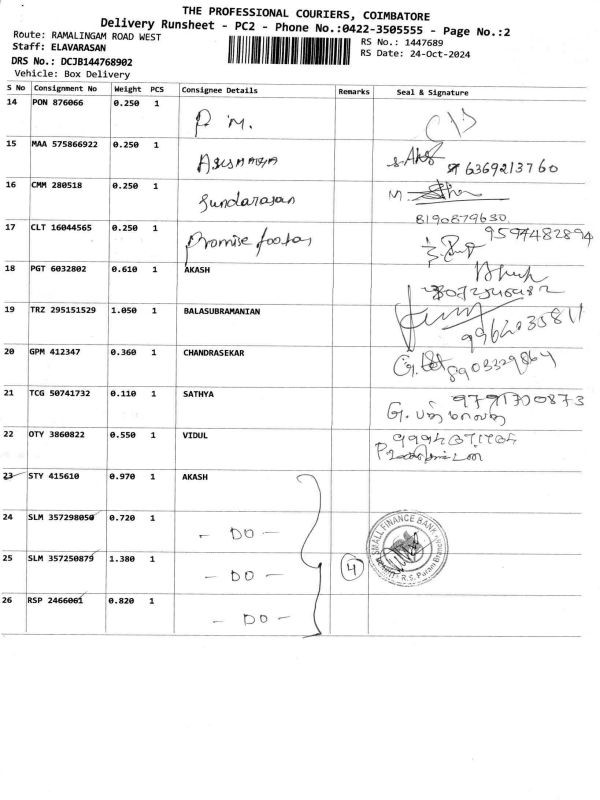 THE PROFESSIONAL COURIERS, COIMBATORE
Delivery Runsheet - PC2 - Phone No.:0422-3505555 - Page No.:2
Route: RAMALINGAM ROAD WEST
RS No.: 1447689
Staff: ELAVARASAN
RS Date: 24-Oct-2024
DRS No.: DCJB144768902
Vehicle: Box Delivery
S No Consignment No Weight PCS Consignee Details Remarks Seal & Signature
14 PON 876066 0.250 1 P. M.
15 MAA 575866922 0.250 1 6369213760
16 CMM 280518 0.250 1 Sundarasan M.
8190879630
17 CLT 16044565 0.250 1 Promise 9597482894
18 PGT 6032802 0.610 1 AKASH
19 TRZ 295151529 1.050 1 BALASUBRAMANIAN
9962035811
20 GPM 412347 0.360 1 CHANDRASEKAR
8903329864
21 TCG 50741732 0.110 1 SATHYA 9791700873
22 OTY 3860822 0.550 1 VIDUL
23 STY 415610 0.970 1 AKASH
24 SLM 357298050 0.720 1 - DO -
25 SLM 357250879 1.380 1 - DO - 4 SMALL FINANCE BANK R.S. Puram
26 RSP 2466061 0.820 1 - DO -